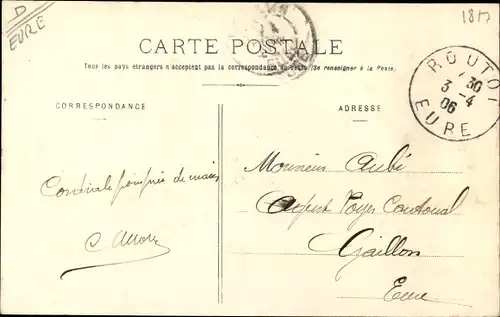 D
EURE
1817
CARTE POSTALE
Tous les pays étrangers n'acceptent pas la correspondance au recto (Se renseigner à la Poste.
ROUTOT
7 30
3 -4
06
EURE
CORRESPONDANCE
ADRESSE
Cordiale poignée de main
Monsieur Aubé
Agent Voyer Cantonal
Gaillon
Eure